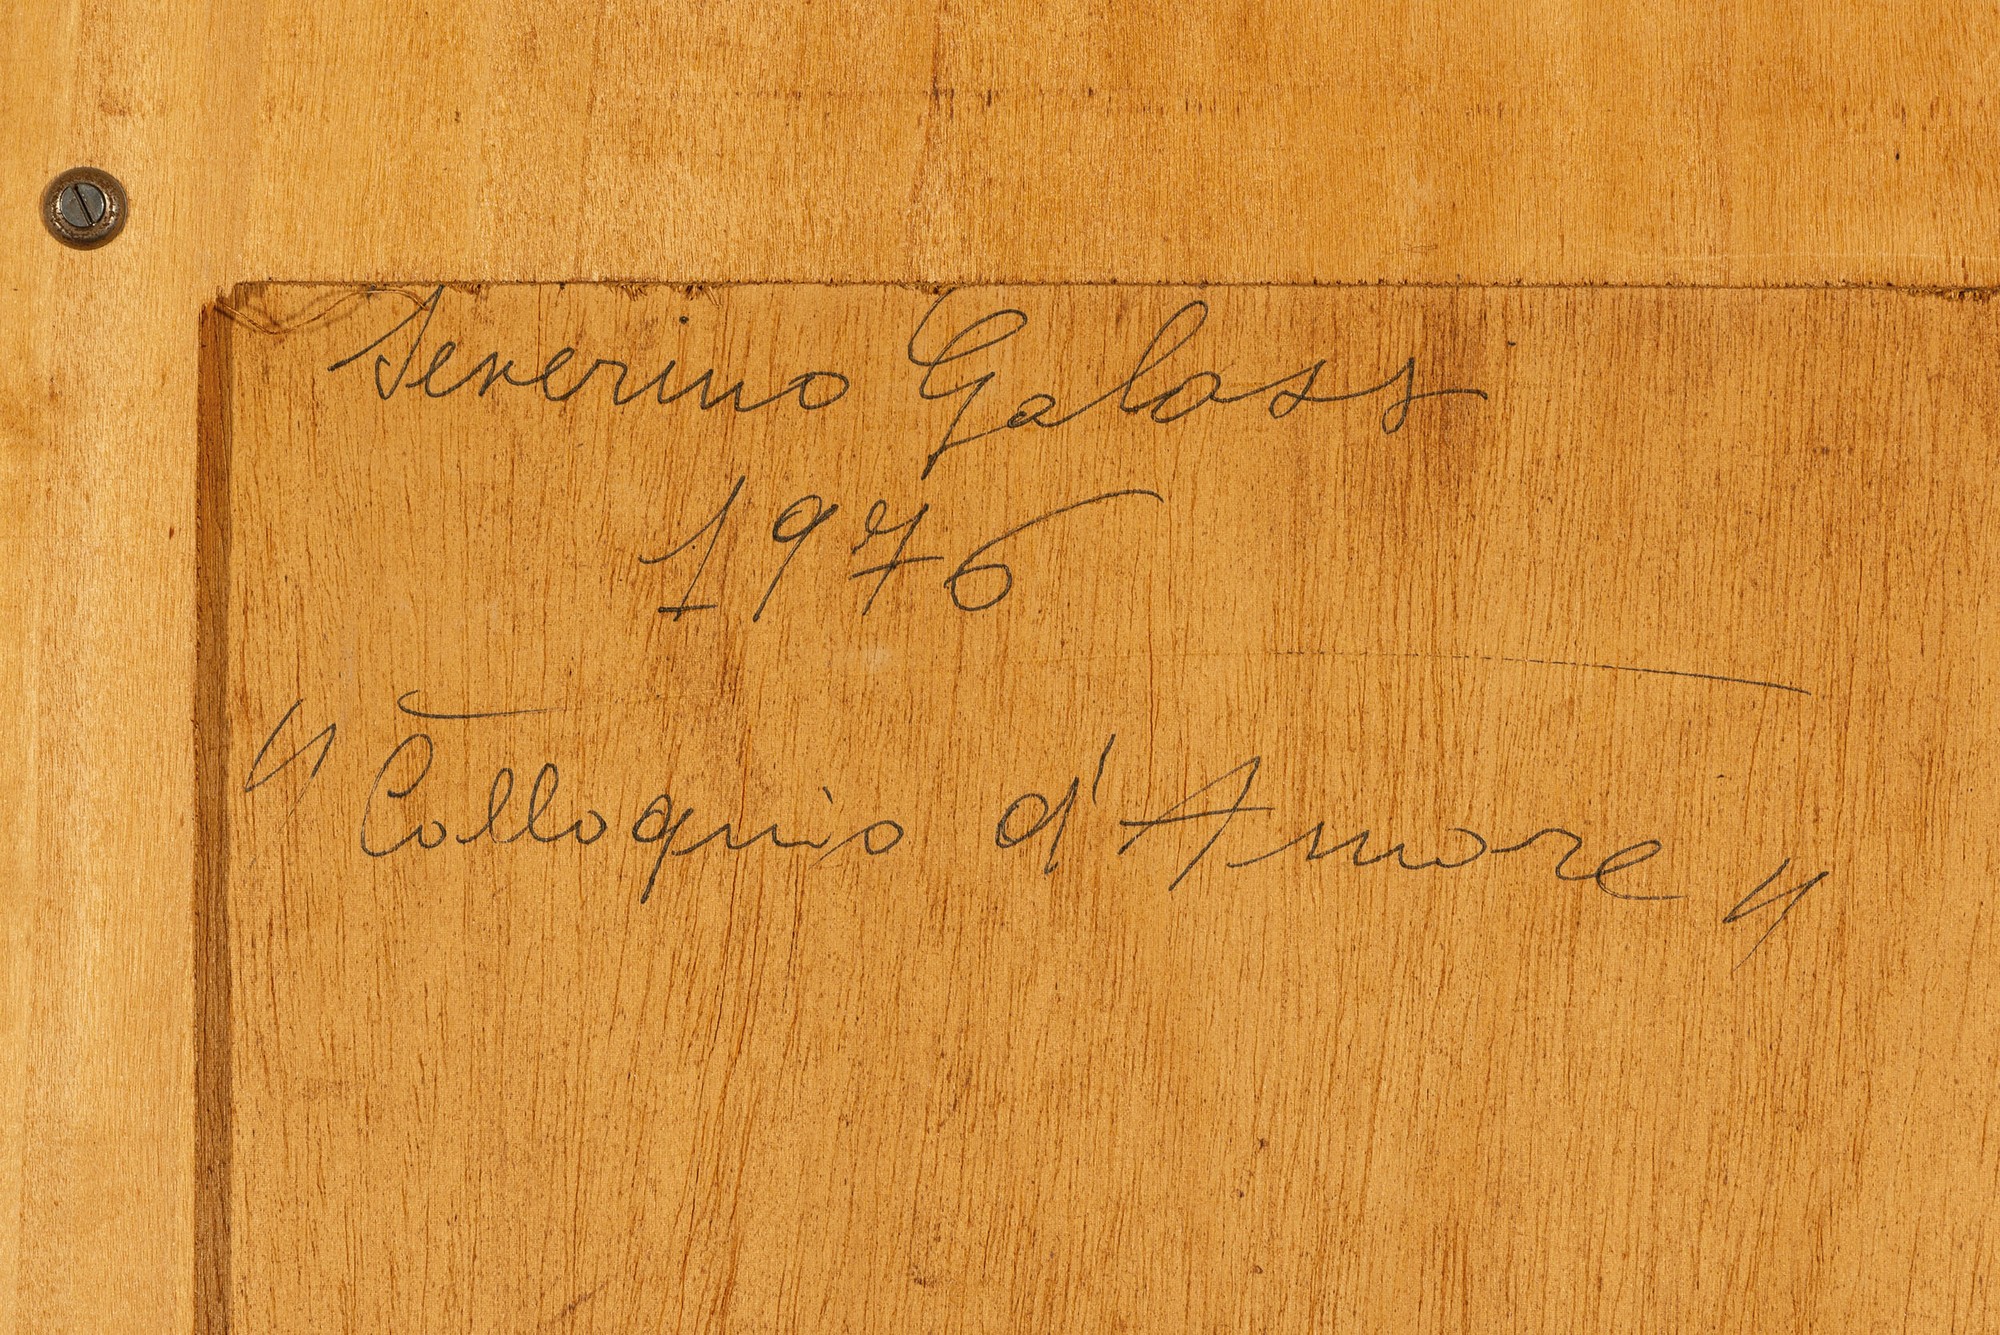 Severino Galassi
1976
"Colloquio d'Amore"